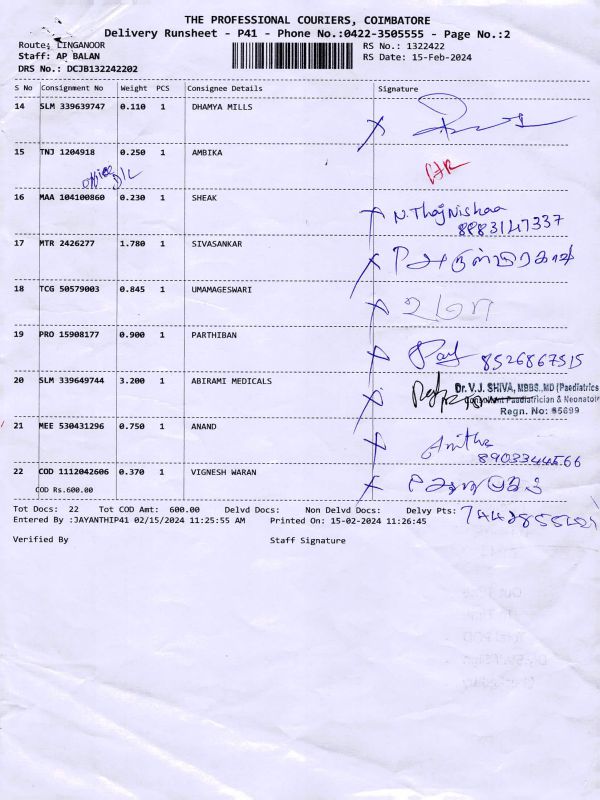 THE PROFESSIONAL COURIERS, COIMBATORE
Delivery Runsheet - P41 - Phone No.:0422-3505555 - Page No.:2
Route: LINGANOOR
RS No.: 1322422
Staff: AP BALAN
RS Date: 15-Feb-2024
DRS No.: DCJB132242202
S No Consignment No Weight PCS Consignee Details Signature
14 SLM 339639747 0.110 1 DHAMYA MILLS
15 TNJ 1204918 0.250 1 AMBIKA
office
16 MAA 104100860 0.230 1 SHEAK N.ThajNishaa
8883147337
17 MTR 2426277 1.780 1 SIVASANKAR
18 TCG 50579003 0.845 1 UMAMAGESWARI உமா
19 PRO 15908177 0.900 1 PARTHIBAN
8526867515
20 SLM 339649744 3.200 1 ABIRAMI MEDICALS Dr. V.J. SHIVA, MBBS.,MD (Paediatrics
Consultant Paediatrician & Neonatolo
Regn. No: 85699
21 MEE 530431296 0.750 1 ANAND Anitha
8903344566
22 COD 1112042606 0.370 1 VIGNESH WARAN
COD Rs.600.00
Tot Docs: 22 Tot COD Amt: 600.00 Delvd Docs: Non Delvd Docs: Delvy Pts:
Entered By :JAYANTHIP41 02/15/2024 11:25:55 AM Printed On: 15-02-2024 11:26:45
Verified By Staff Signature